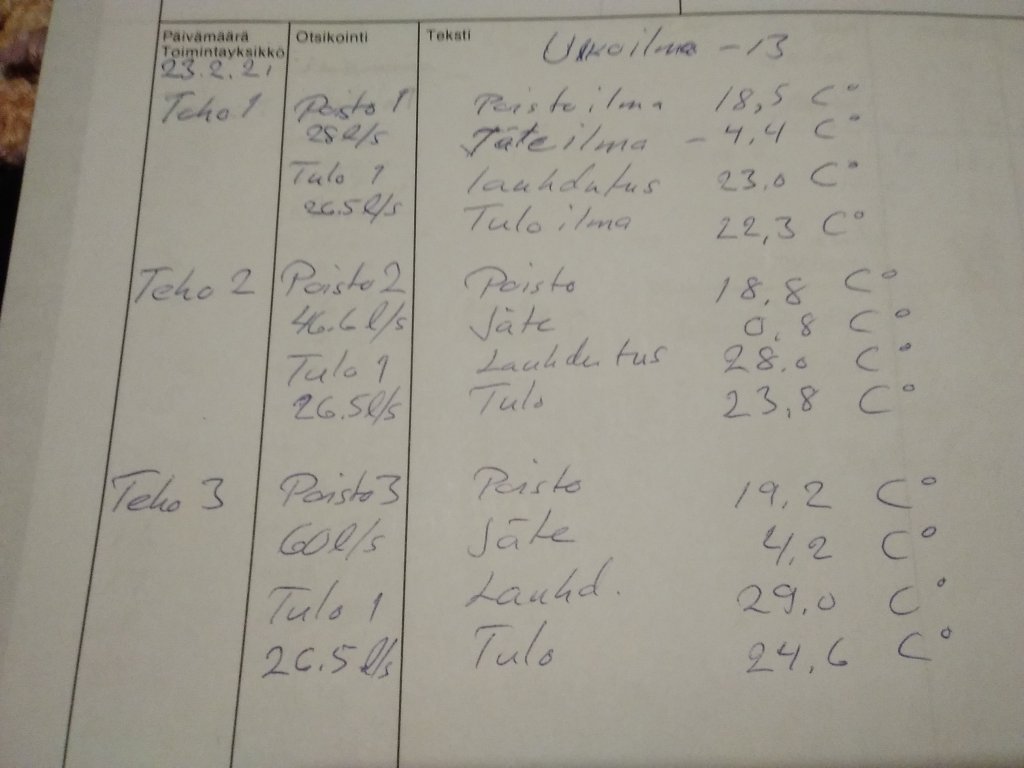 Päivämäärä Toimintayksikkö Otsikointi Teksti
23.2.21 Ulkoilma -13
Teho 1 Poisto 1 Poistoilma 18,5 C°
28 l/s Jäteilma -4,4 C°
Tulo 1 lauhdutus 23.0 C°
26.5 l/s Tuloilma 22,3 C°
Teho 2 Poisto 2 Poisto 18,8 C°
46.6 l/s Jäte 0,8 C°
Tulo 1 Lauhdutus 28.0 C°
26.5 l/s Tulo 23,8 C°
Teho 3 Poisto 3 Poisto 19,2 C°
60 l/s Jäte 4,2 C°
Tulo 1 Lauhd. 29,0 C°
26.5 l/s Tulo 24,6 C°